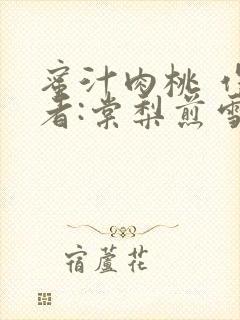 蜜汁肉桃 作
者:棠梨煎雪
宿蘆花